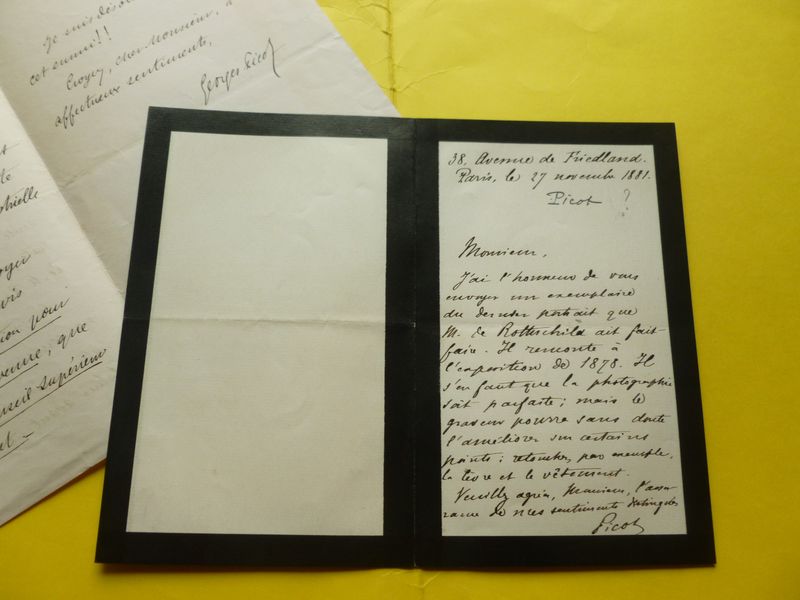 Je suis désolé
cet ennui!!
Croyez, cher Monsieur, à
affectueux sentiments.
Georges Picot
trielle
vis
ion pour
, que
nseil Supérieur
38, Avenue de Friedland.
Paris, le 27 novembre 1881.
Picot ?
Monsieur,
J'ai l'honneur de vous
envoyer un exemplaire
du dernier portrait que
M. de Rothschild ait fait
faire. Il remonte à
l'exposition de 1878. Il
s'en faut que la photographie
soit parfaite; mais le
graveur pourra sans doute
l'améliorer sur certains
points; retoucher, par exemple,
la lèvre et le vêtement.
Veuillez agréer, Monsieur, l'assu-
rance de mes sentiments distingués
Picot